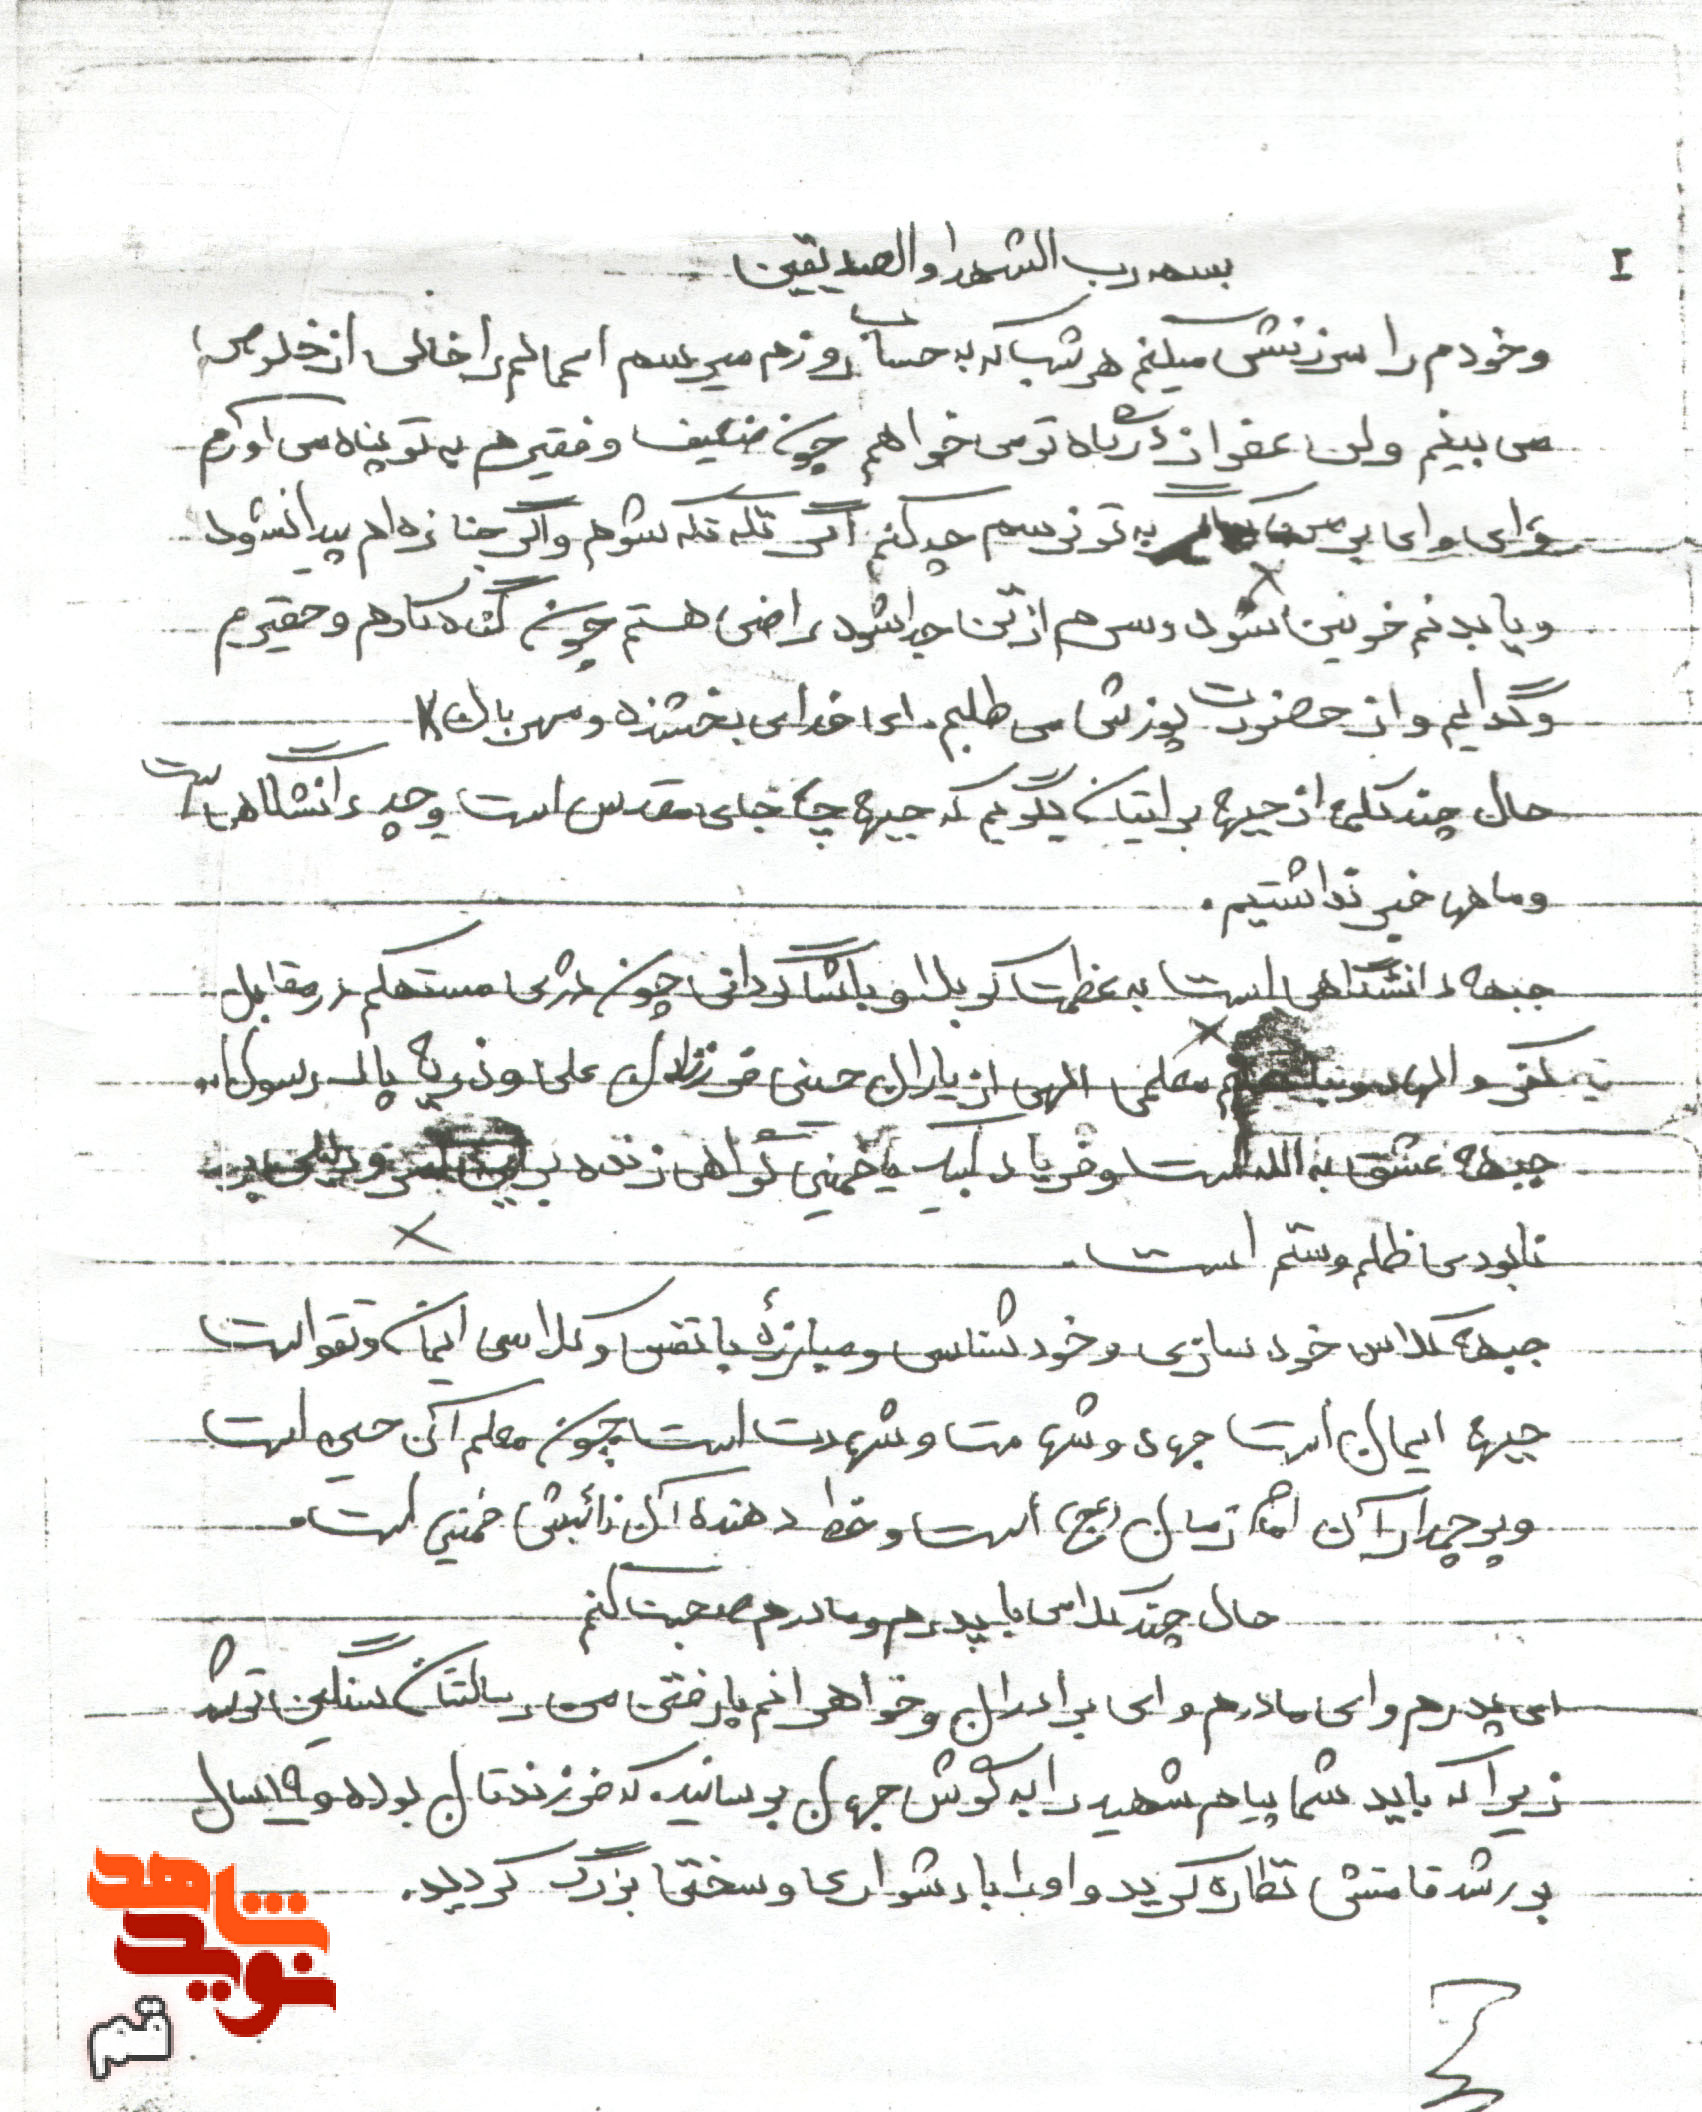 بسم رب الشهدا و الصدیقین
و خودم را سرزنش میکنم هر شب که به حساب روزم میرسم اعمالم را خالی از خلوص
می بینم ولی عفو از درگاه تو می خواهم چون ضعیف و فقیرم به تو پناه می آورم
وای وای بر من به تو نرسم چه کنم اگر تکه تکه شوم و اگر جنازه ام پیدا نشود
و یا بدنم خونین شود و سرم از تن جدا شود راضی هستم چون گنه کارم و حقیرم
و گدایم و از حضورت پوزش می طلبم. ای خدای بخشنده و مهربان
حال چند کلمه از جبهه برایتان بگویم که جبهه چه جای مقدس است و چه دانشگاهیست
و ما هم خبر نداشتیم.
جبهه دانشگاهی است به عظمت کربلا و با شاگردانی چون دژی مستحکم در مقابل
کفر و الحاد و معلمی الهی از یاران حسینی فرزندان علی و ذریه پاک رسول ا..
جبهه عشق به الله است و فریاد لبیک یا خمینی گواهی زنده بر
نابودی ظلم و ستم است.
جبهه کلاس خود سازی و خود شناسی و مبارزهٔ با نفس و کلاسی ایمان و تقواست
جبهه ایمان است جهد و شهامت و شهدت است چون معلم آن حسین است
و پرچمدار آن امام زمان (عج) است و خط دهندهٔ آن نائبش خمینی است.
حال چند کلامی با پدرم و مادرم صحبت کنم
ای پدرم و ای مادرم و ای برادران و خواهرانم با رفتن من رسالتتان سنگین تر شد
زیرا که باید شما پیام شهید را به گوش جهان برسانید. که فرزندتان بوده و ۱۹ سال
بر رشد قامتش نظاره کردید و او را با دشواری و سختی بزرگ کردید.
شاهد
نوید
قم